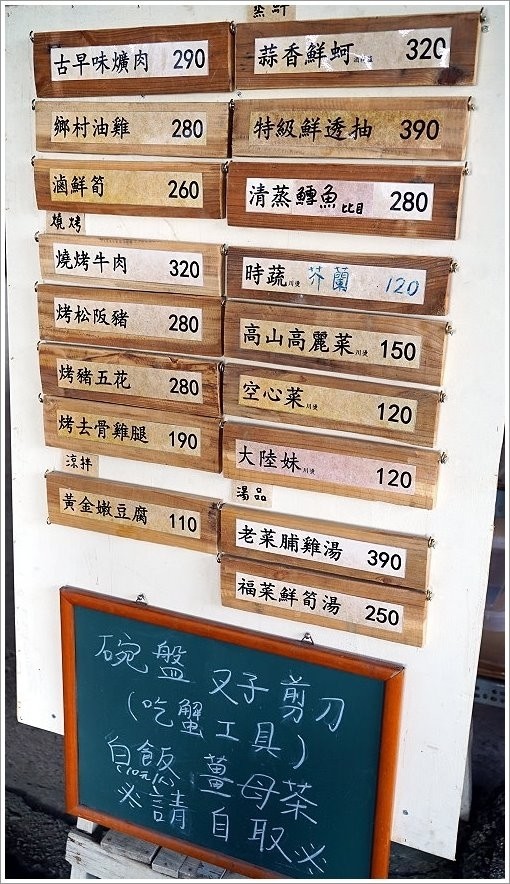 古早味爌肉 290
鄉村油雞 280
滷鮮筍 260
燒烤
燒烤牛肉 320
烤松阪豬 280
烤豬五花 280
烤去骨雞腿 190
涼拌
黃金嫩豆腐 110
蒜香鮮蚵 320
特級鮮透抽 390
清蒸鱈魚 比目 280
時蔬 川燙 芥蘭 120
高山高麗菜 川燙 150
空心菜 川燙 120
大陸妹 川燙 120
湯品
老菜脯雞湯 390
福菜鮮筍湯 250
碗盤 叉子 剪刀
(吃蟹工具)
白飯 薑母茶
(10元/人)
請自取